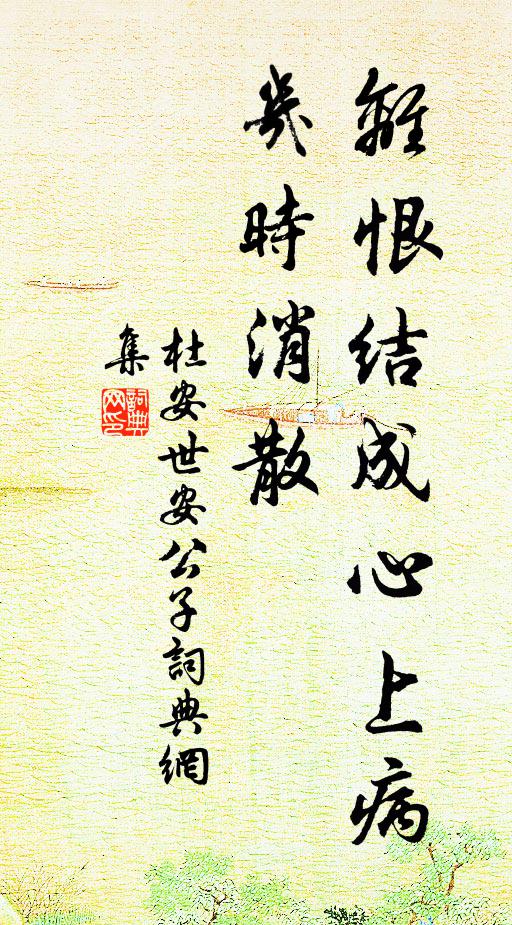 離恨結成心上病
幾時消散
杜安世安公子詞典網
集
詞典网印